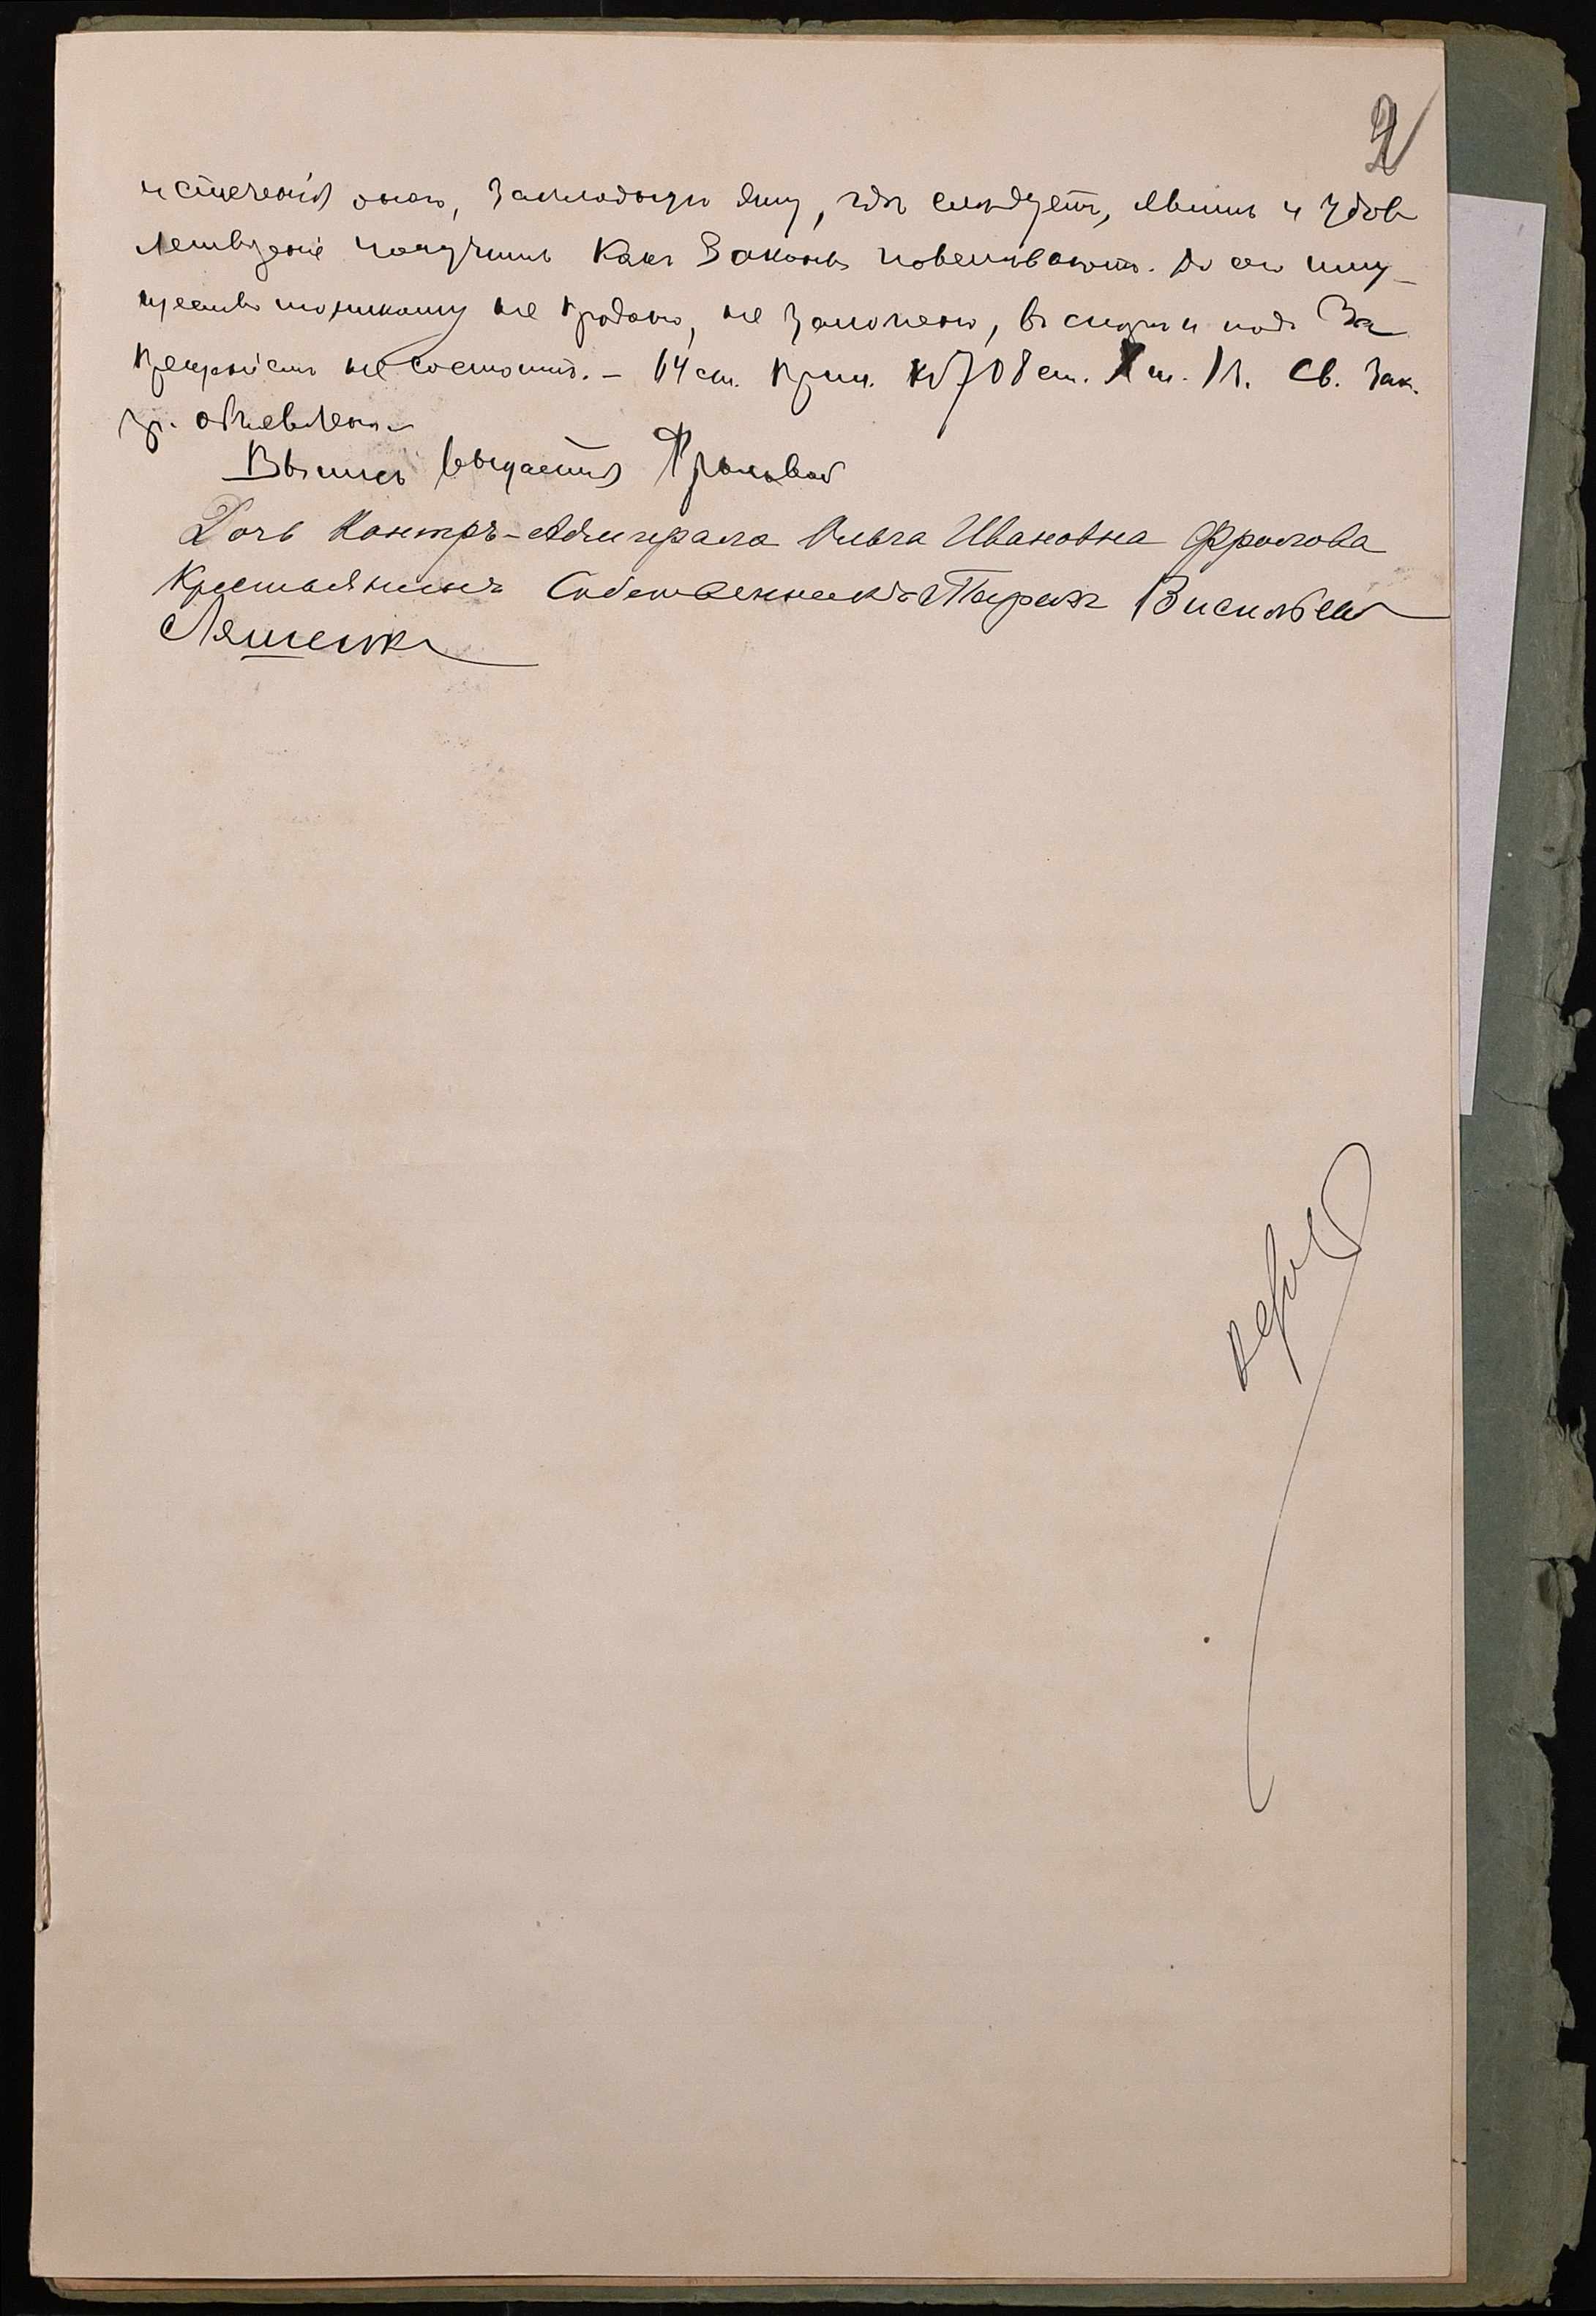 2
истеченія онаго, закладную эту, гдѣ слѣдуетъ, явить и удов
летвореніе получить какъ законы повелѣваютъ. До сего иму-
щество то никому не продано, не заложено, въ спорѣ и подъ за
прещеніемъ не состоитъ. – 64 ст. прил. къ 708 ст. X т. 1 ч. Св. Зак.
гр. объявлена.
Выпись выдается Фроловой
Дочь Контръ-Адмирала Ольга Ивановна Фролова
Крестьянинъ Собственникъ Тарасъ Васильевъ
Ляшенко